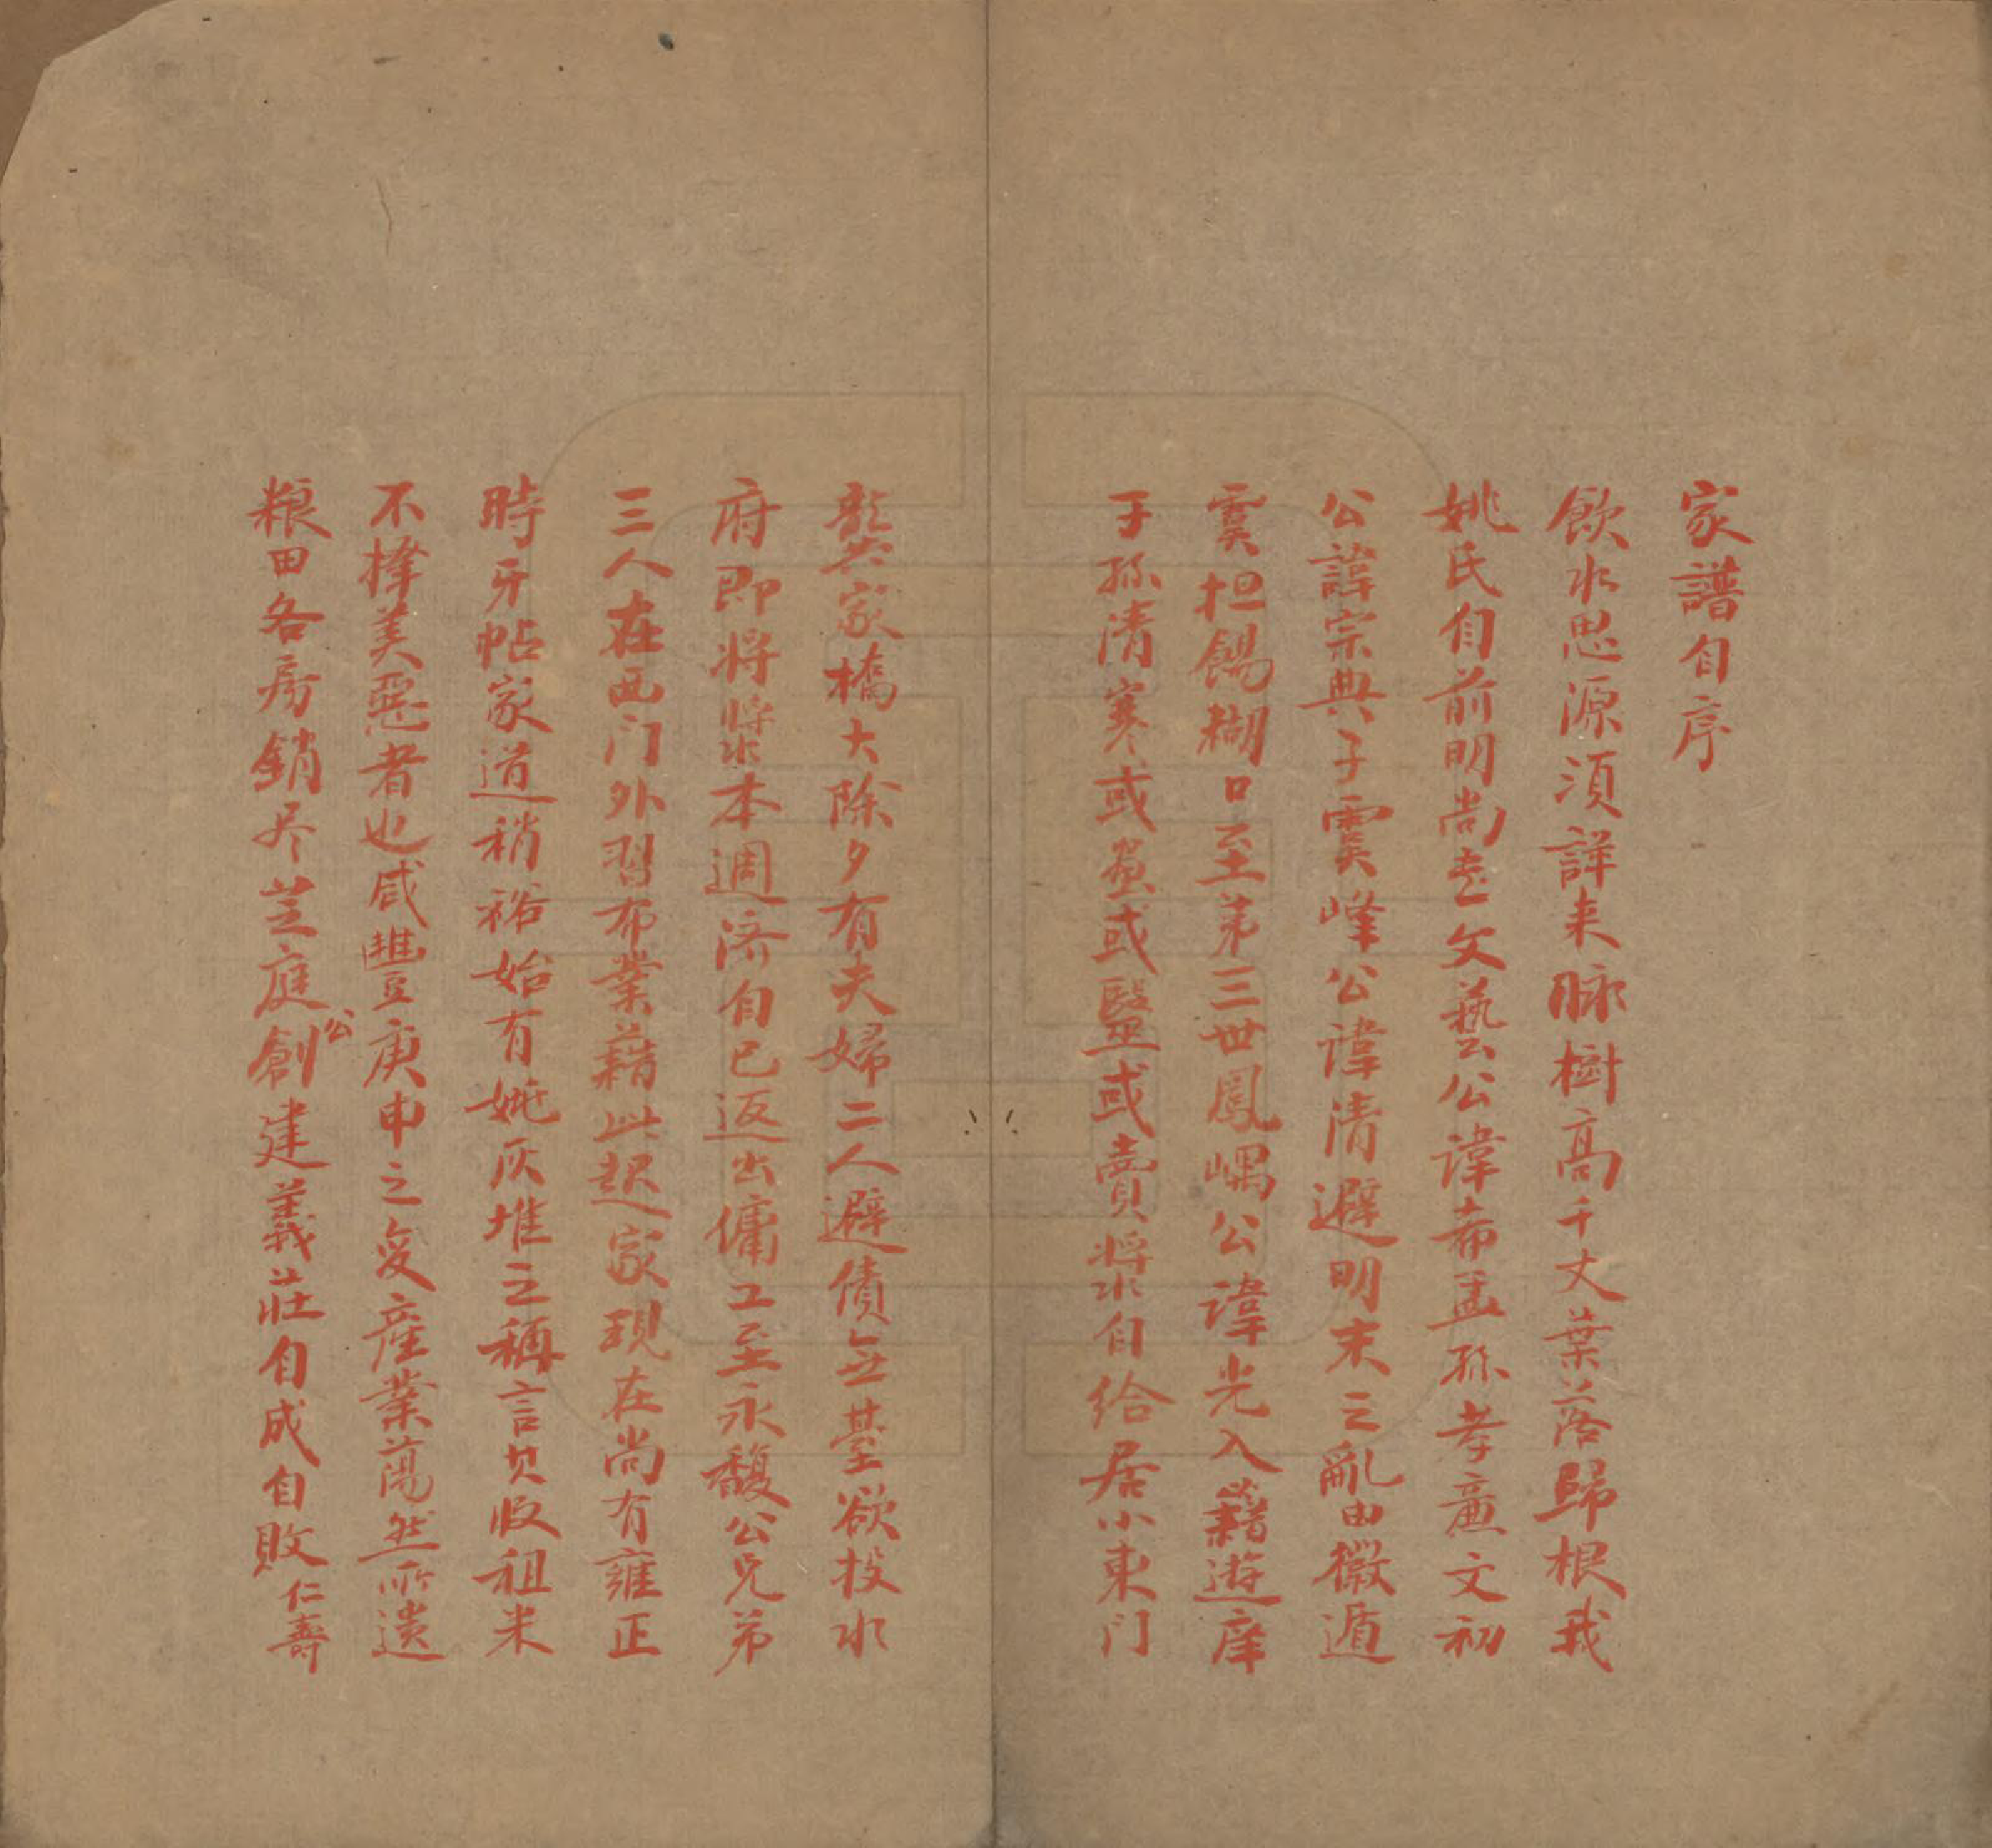 家譜自序
飲水思源須詳来脉樹髙千丈葉落歸根我
姚氏自前明尚書文藝公諱希孟孫孝亷文初
公諱宗典子雲峰公諱清避明末之亂由徽遁
虞担餳糊口至第三世鳳嵎公諱光入籍遊庠
子孫清寒或蚕或醫或賣漿自给居小東门
龔家橋大除夕有夫婦二人避債無臺欲投水
府即将漿本週济自已返出傭工至永馥公兄弟
三人在西门外習布業藉此起家現在尚有雍正
時牙帖家道稍裕始有姚灰堆之稱言其收租米
不擇美惡者也咸豐庚申之変産業蕩然所遗
粮田各房銷尽芝庭公創建義莊自成自敗仁壽